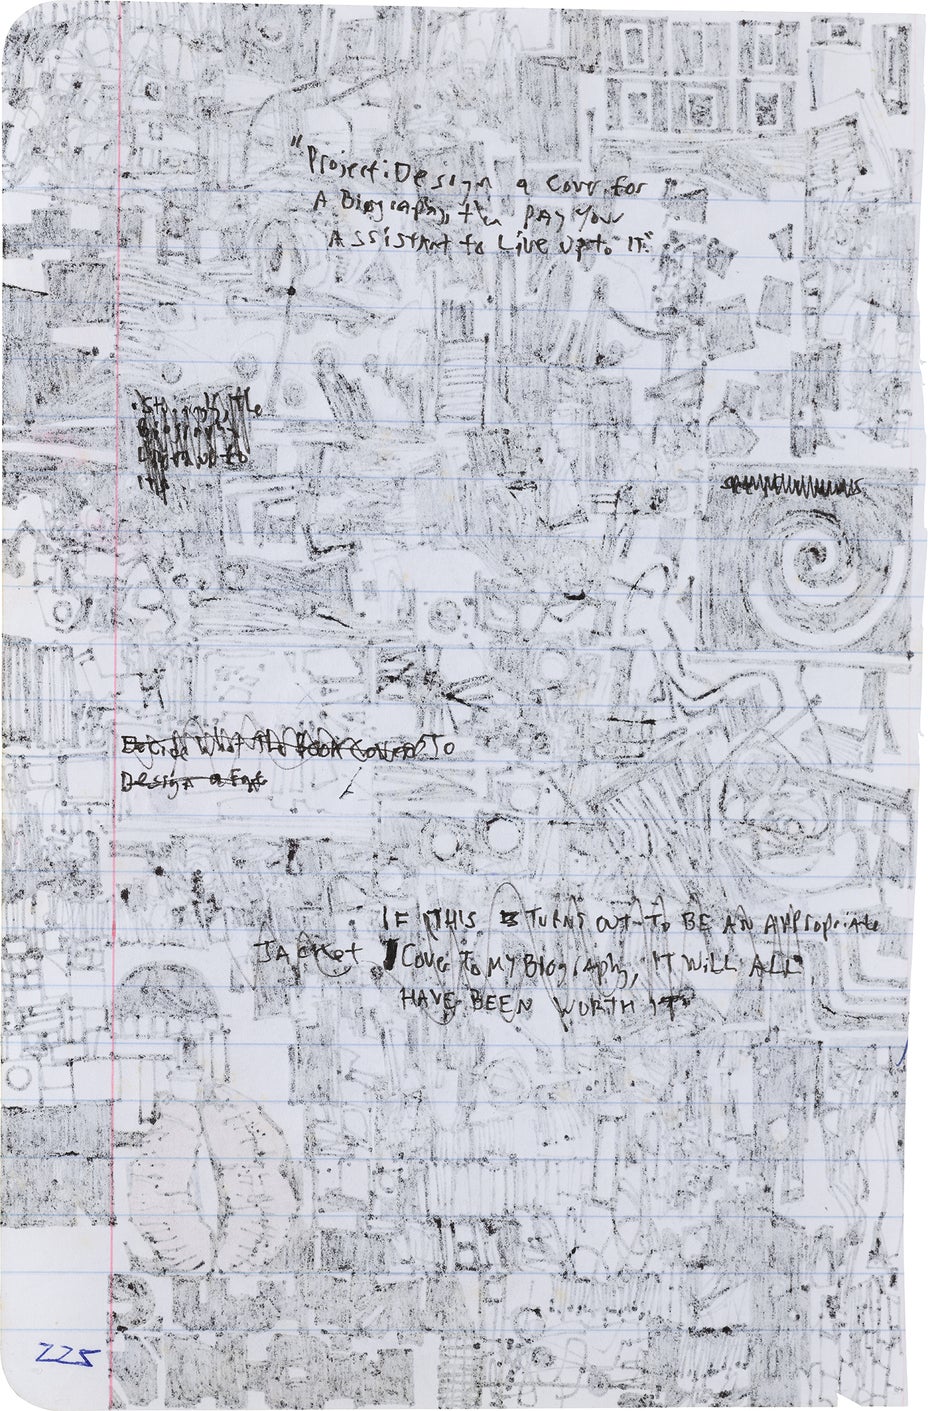 "Project: Design a Cover for
A Biography, then PAY Your
Assistant to Live up to IT."
Decide What the Book Cover To
Design a
IF THIS TURNS OUT TO BE AN APPropriate
Jacket Cover To MY Biography, IT WILL ALL
HAVE BEEN WORTH IT"
225